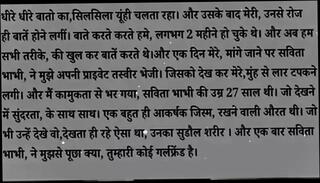 धीरे धीरे बातो का,सिलसिला यूंही चलता रहा। और उसके बाद मेरी, उनसे रोज
ही बातें होने लगीं। बाते करते करते हमे, लगभग 2 महीने हो चुके थे। और अब हम
सभी तरीके, की खुल कर बातें करते थे।और एक दिन मेरे, मांगे जाने पर सविता
भाभी, ने मुझे अपनी प्राइवेट तस्वीर भेजी। जिसको देख कर मेरे,मुंह से लार टपकने
लगी। और मैं कामुकता से भर गया, सविता भाभी की उम्र 27 साल थी। जो देखने
में सुंदरता, के साथ साथ। एक बहुत ही आकर्षक जिस्म, रखने वाली औरत थी। जो
भी उन्हें देखे वो,देखता ही रहे ऐसा था, उनका सुडौल शरीर । और एक बार सविता
भाभी, ने मुझसे पूछा क्या, तुम्हारी कोई गर्लफ्रेंड है।